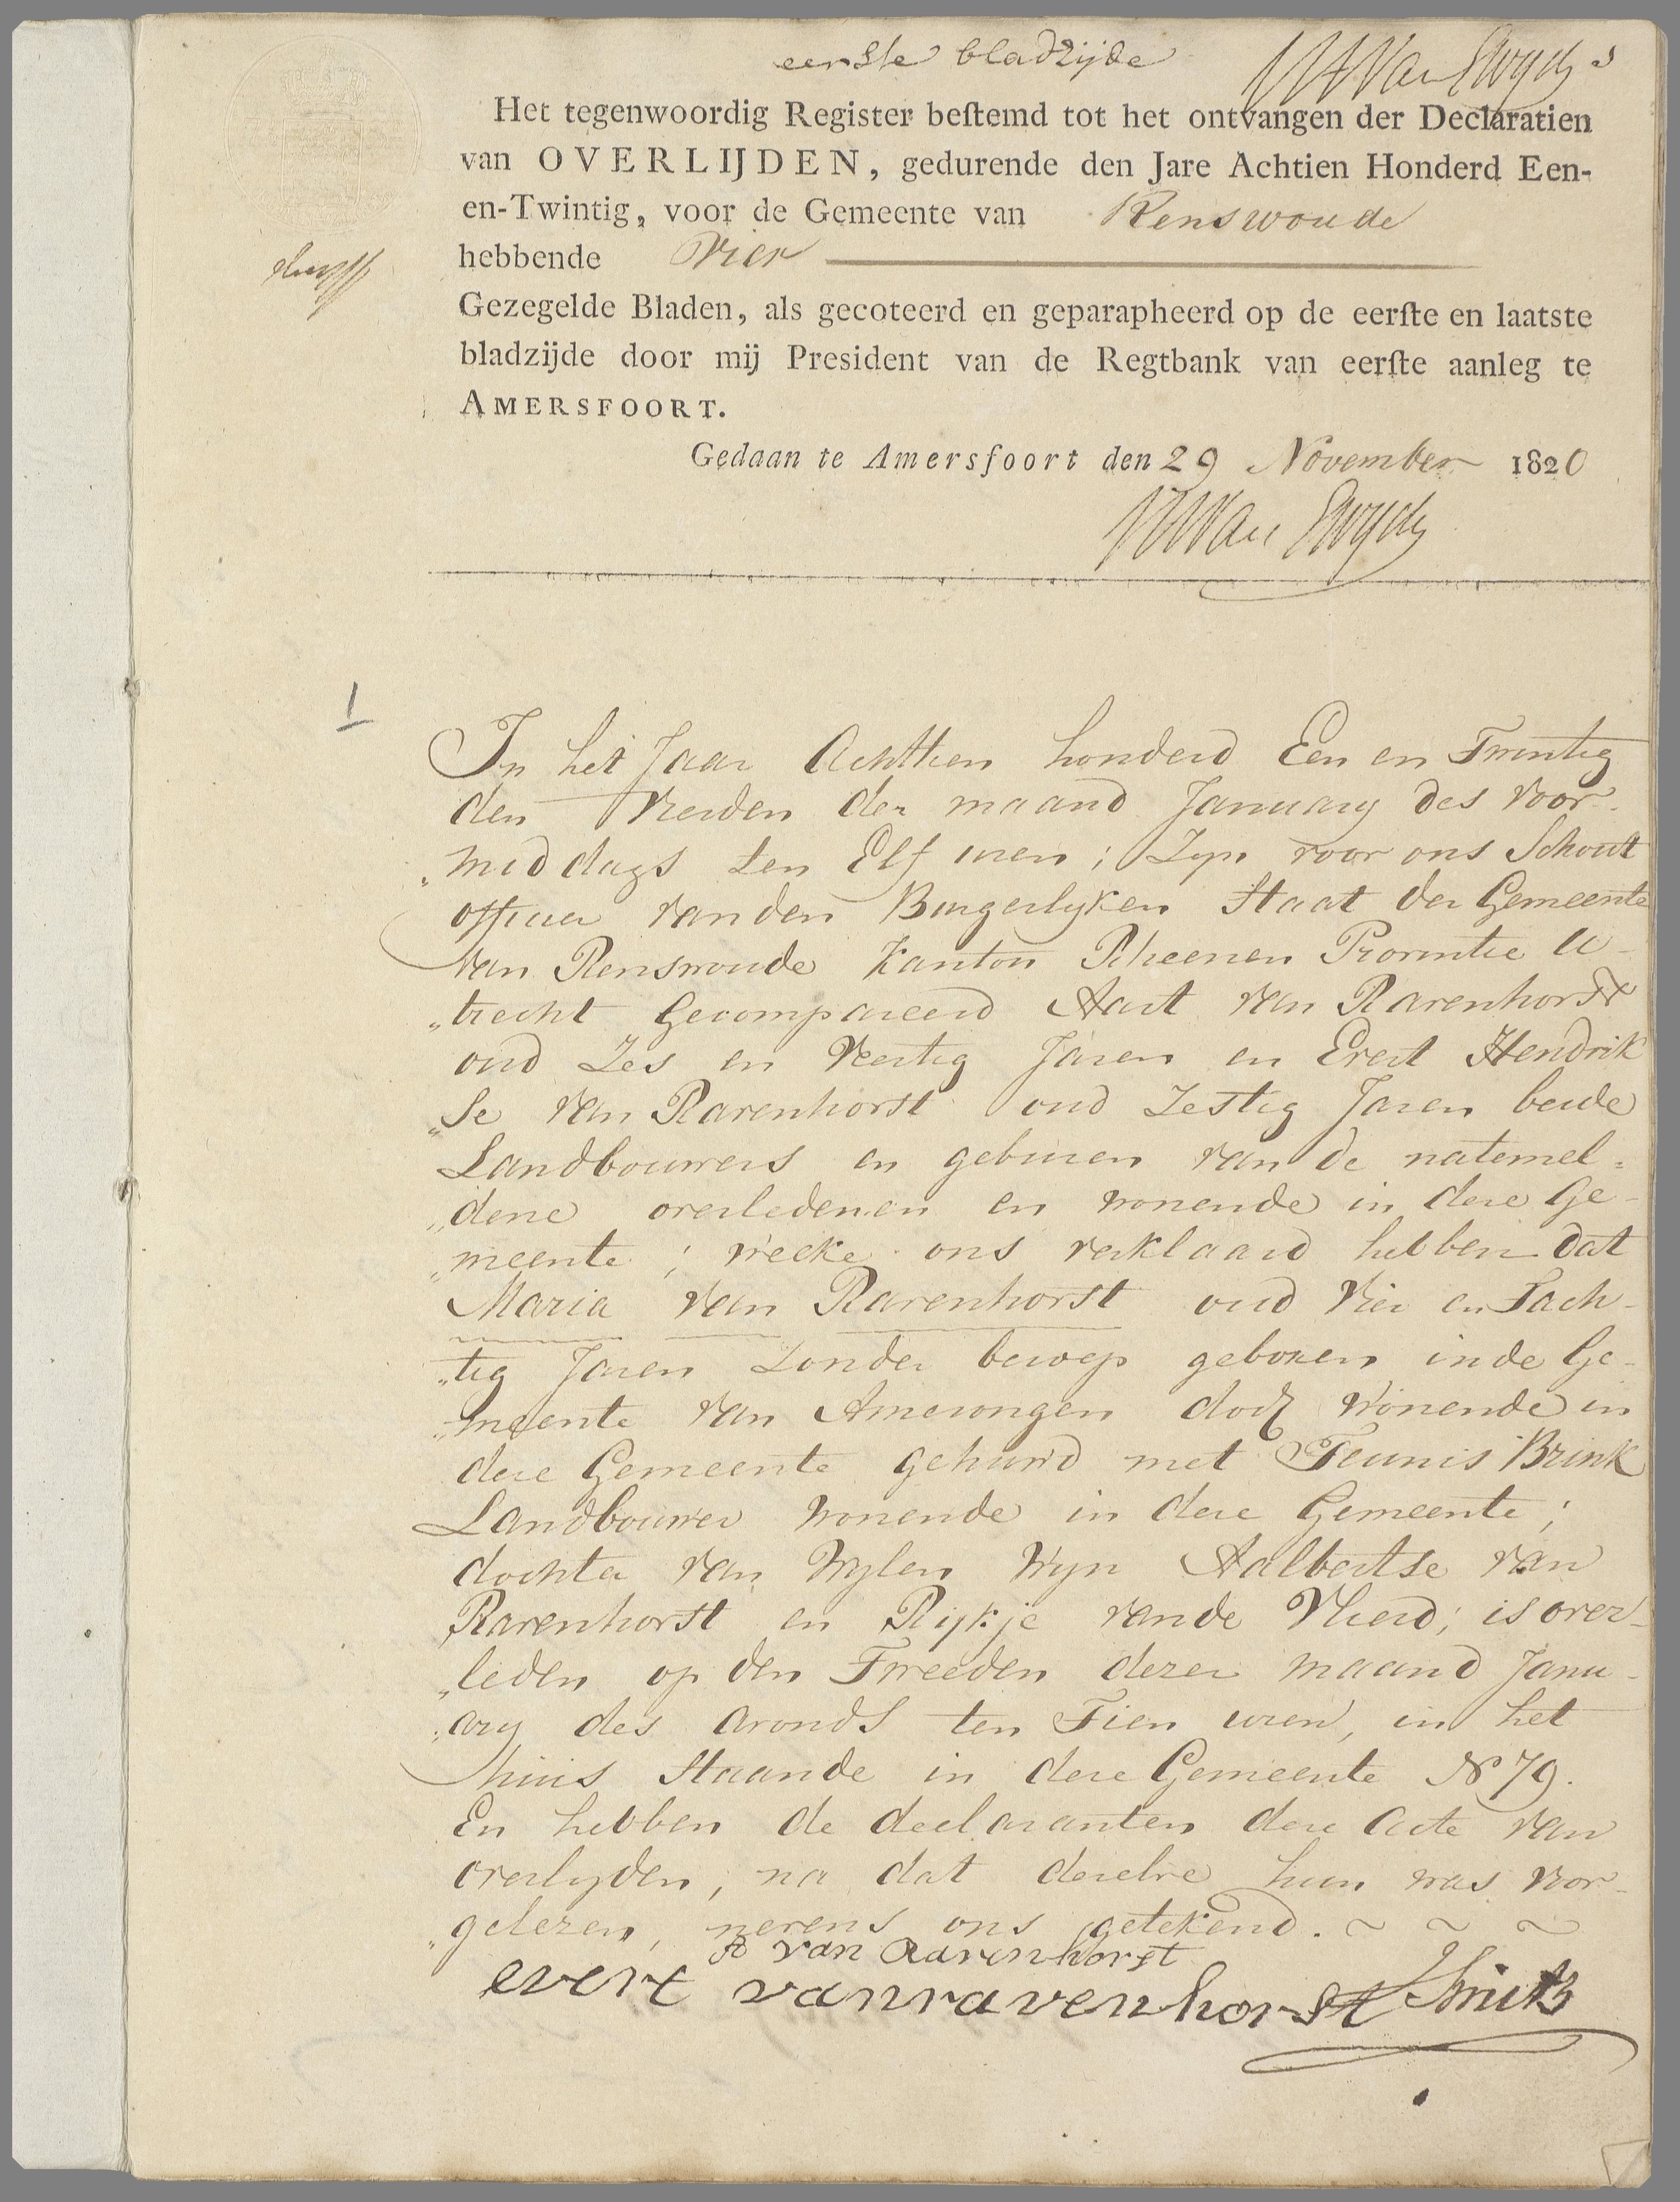 eerste bladzijde
Het tegenwoordig Register beſtemd tot het ontvangen der Declaratien
van OVERLIJDEN, gedurende den Jare Achtien Honderd Een-
en-Twintig, voor de Gemeente van Renswoude
hebbende Vier
Gezegelde Bladen, als gecoteerd en geparapheerd op de eerſte en laatste
bladzijde door mij President van de Regtbank van eerſte aanleg te
AMERSFOORT.
Gedaan te Amersfoort den 29 November 1820
1
In het Jaar Achttien honderd Een en Twintig
den Vierden der maand January des voor-
„middags ten Elf uren; Zyn voor ons Schout
officier van den Burgerlyken Staat der Gemeente
van Renswoude Kanton Rheenen Provintie U-
„trecht Gecompareerd Aart van Ravenhorst
oud Zes en Veertig Jaren en Evert Hendrik
„se van Ravenhorst oud Zestig Jaren beide
Landbouwers en geburen van de natemel=
„dene overledenen en wonende in deze Ge-
„meente; wecke ons verklaard hebben dat
Maria van Ravenhorst oud Vier en Tach-
„tig Jaren Zonder beroep geboren in de Ge-
„meente van Amerongen doch Wonende in
deze Gemeente gehuwd met Teunis Brink
Landbouwer wonende in deze Gemeente;
dochter van Wylen Wyn Aalbertse van
Ravenhorst en Rijkje vande Vlierd; is over-
„leden op den Tweeden dezer maand Janu-
„ary des avonds ten Tien uren, in het
huis Staande in deze Gemeente No 79.
En hebben de declaranten deze acte van
overlyden, na dat dezelve hun was voor-
„gelezen, nevens ons getekend. ~ ~ ~
A van Ravenhorst
evert van ravenhorst Smits